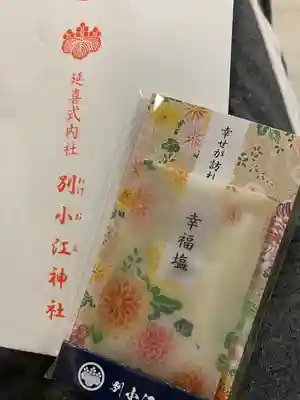 延喜式内社
別小江神社
わけ お え
幸せが訪れ
幸福塩
別小江